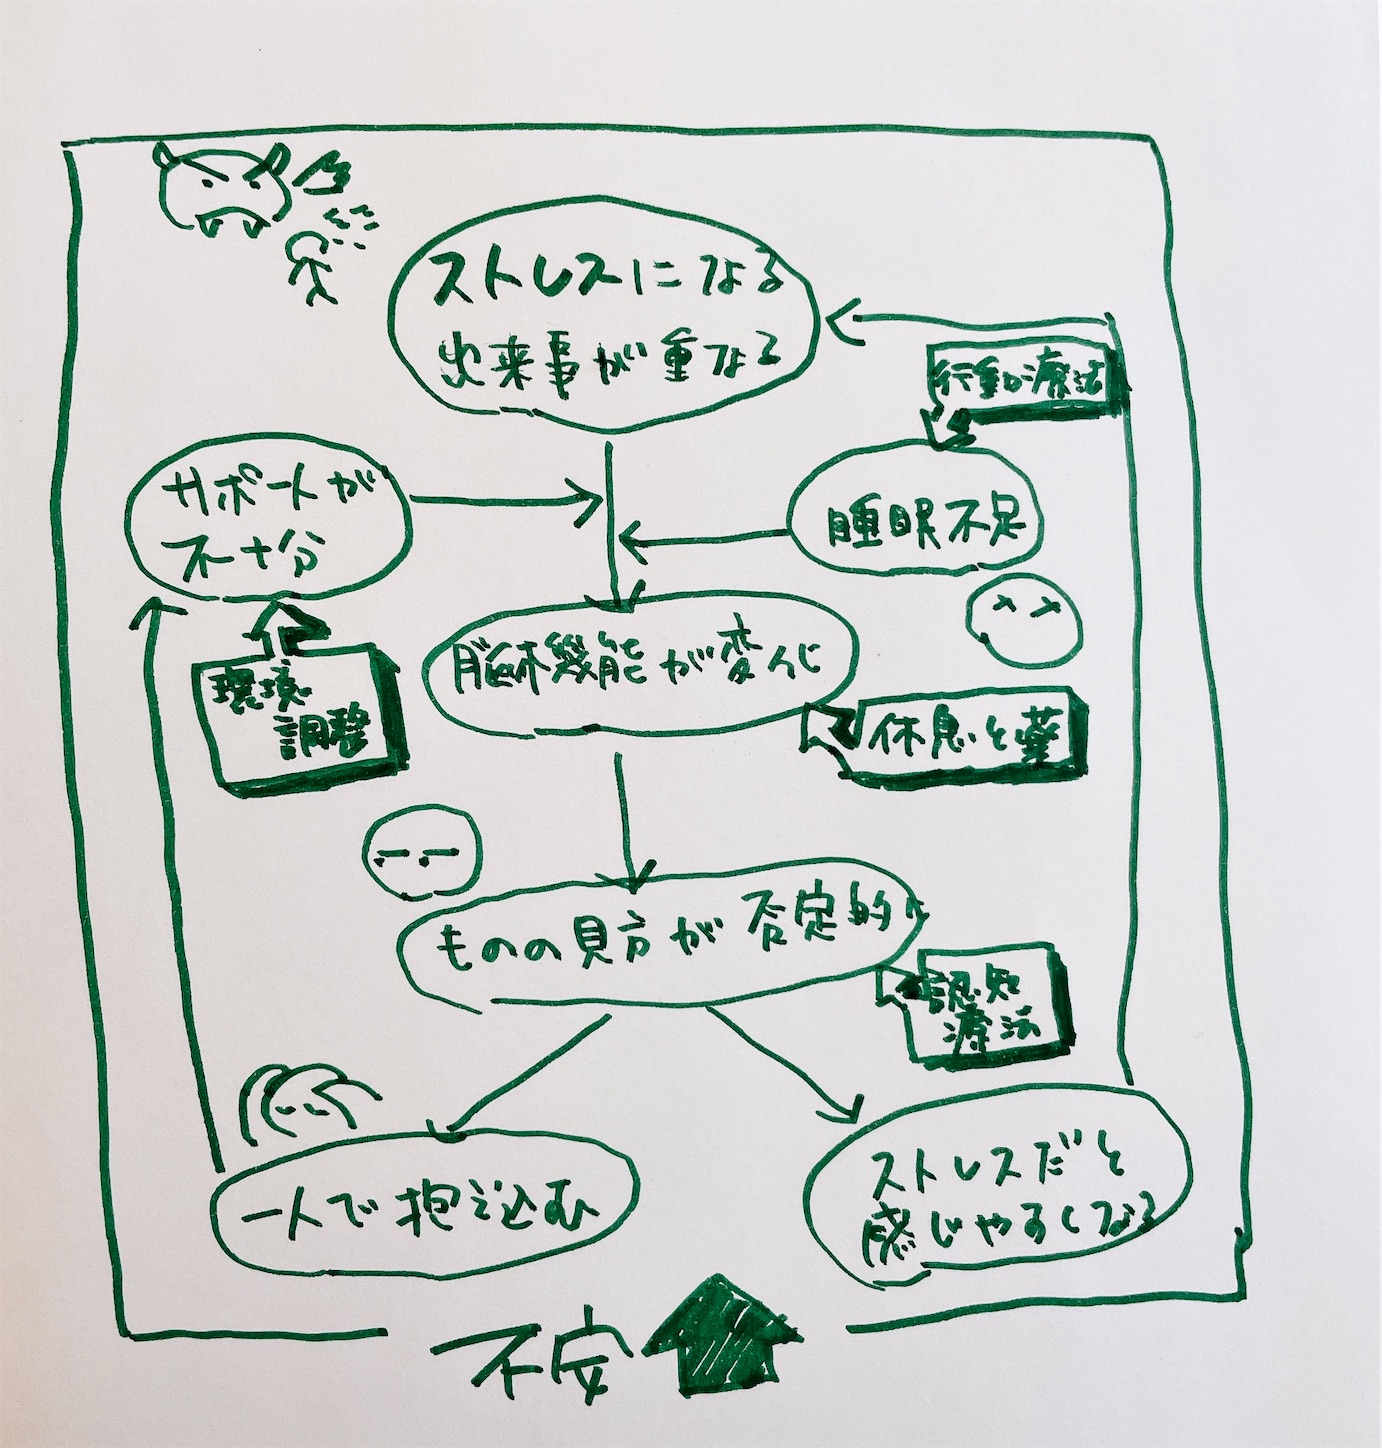 ストレスになる
出来事が重なる
行動療法
サポートが
不十分
睡眠不足
脳機能が変化
環境
調整
休息と薬
ものの見方が否定的に
認知
療法
一人で抱え込む
ストレスだと
感じやすくなる
不安